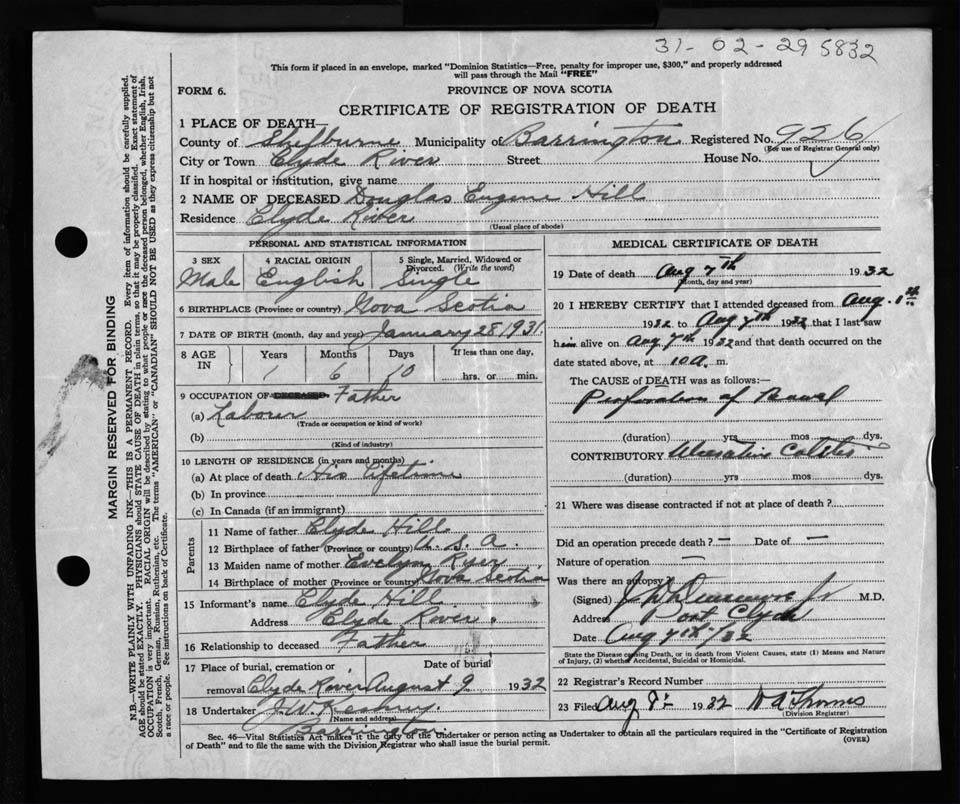 31-02-29 5832
This form if placed in an envelope, marked "Dominion Statistics—Free, penalty for improper use, $300," and properly addressed
will pass through the Mail "FREE"
FORM 6.
PROVINCE OF NOVA SCOTIA
CERTIFICATE OF REGISTRATION OF DEATH
1 PLACE OF DEATH—
County of Shelburne Municipality of Barrington Registered No. 926
(For use of Registrar General only)
City or Town Clyde River Street House No.
If in hospital or institution, give name
2 NAME OF DECEASED Douglas Eugene Hill
Residence Clyde River
(Usual place of abode)
PERSONAL AND STATISTICAL INFORMATION
3 SEX 4 RACIAL ORIGIN 5 Single, Married, Widowed or
Divorced. (Write the word)
Male English Single
6 BIRTHPLACE (Province or country) Nova Scotia
7 DATE OF BIRTH (month, day and year) January 28 1931
8 AGE IN Years Months Days If less than one day,
1 6 10 hrs. or min.
9 OCCUPATION OF DECEASED Father
(a) Laborer
(Trade or occupation or kind of work)
(b)
(Kind of industry)
10 LENGTH OF RESIDENCE (in years and months)
(a) At place of death His lifetime
(b) In province
(c) In Canada (if an immigrant)
Parents
11 Name of father Clyde Hill
12 Birthplace of father (Province or country) U. S. A.
13 Maiden name of mother Evelyn
14 Birthplace of mother (Province or country) Nova Scotia
15 Informant's name Clyde Hill
Address Clyde River
16 Relationship to deceased Father
17 Place of burial, cremation or Date of burial
removal Clyde River August 9 1932
18 Undertaker J. W.
(Name and address)
Barrington
MEDICAL CERTIFICATE OF DEATH
19 Date of death Aug 7th 1932
(Month, day and year)
20 I HEREBY CERTIFY that I attended deceased from Aug. 1st
1932 to Aug 7th 1932 that I last saw
him alive on Aug 7th 1932 and that death occurred on the
date stated above, at 10 a. m.
The CAUSE of DEATH was as follows:—
Perforation of Bowel
(duration) yrs mos dys.
CONTRIBUTORY Ulcerative Colitis
(duration) yrs mos dys.
21 Where was disease contracted if not at place of death?
Did an operation precede death? — Date of —
Nature of operation —
Was there an autopsy
(Signed) Jr M.D.
Address Port Clyde
Date Aug 7th/32
State the Disease causing Death, or in death from Violent Causes, state (1) Means and Nature
of Injury, (2) whether Accidental, Suicidal or Homicidal.
22 Registrar's Record Number
23 Filed Aug 8th 1932
(Division Registrar)
Sec. 46—Vital Statistics Act makes it the duty of the Undertaker or person acting as Undertaker to obtain all the particulars required in the "Certificate of Registration
of Death" and to file the same with the Division Registrar who shall issue the burial permit. (OVER)
MARGIN RESERVED FOR BINDING
N.B.—WRITE PLAINLY WITH UNFADING INK—THIS IS A PERMANENT RECORD. Every item of information should be carefully supplied.
AGE should be stated EXACTLY. PHYSICIANS should STATE CAUSE OF DEATH in plain terms, so that it may be properly classified. Exact statement of
OCCUPATION is very important. RACIAL ORIGIN will be described by stating to what people or race the deceased person belonged, whether English, Irish,
Scotch, French, German, Russian, Ruthenian, etc. The terms "AMERICAN" or "CANADIAN" SHOULD NOT BE USED as they express citizenship but not
a race or people. See instructions on back of Certificate.